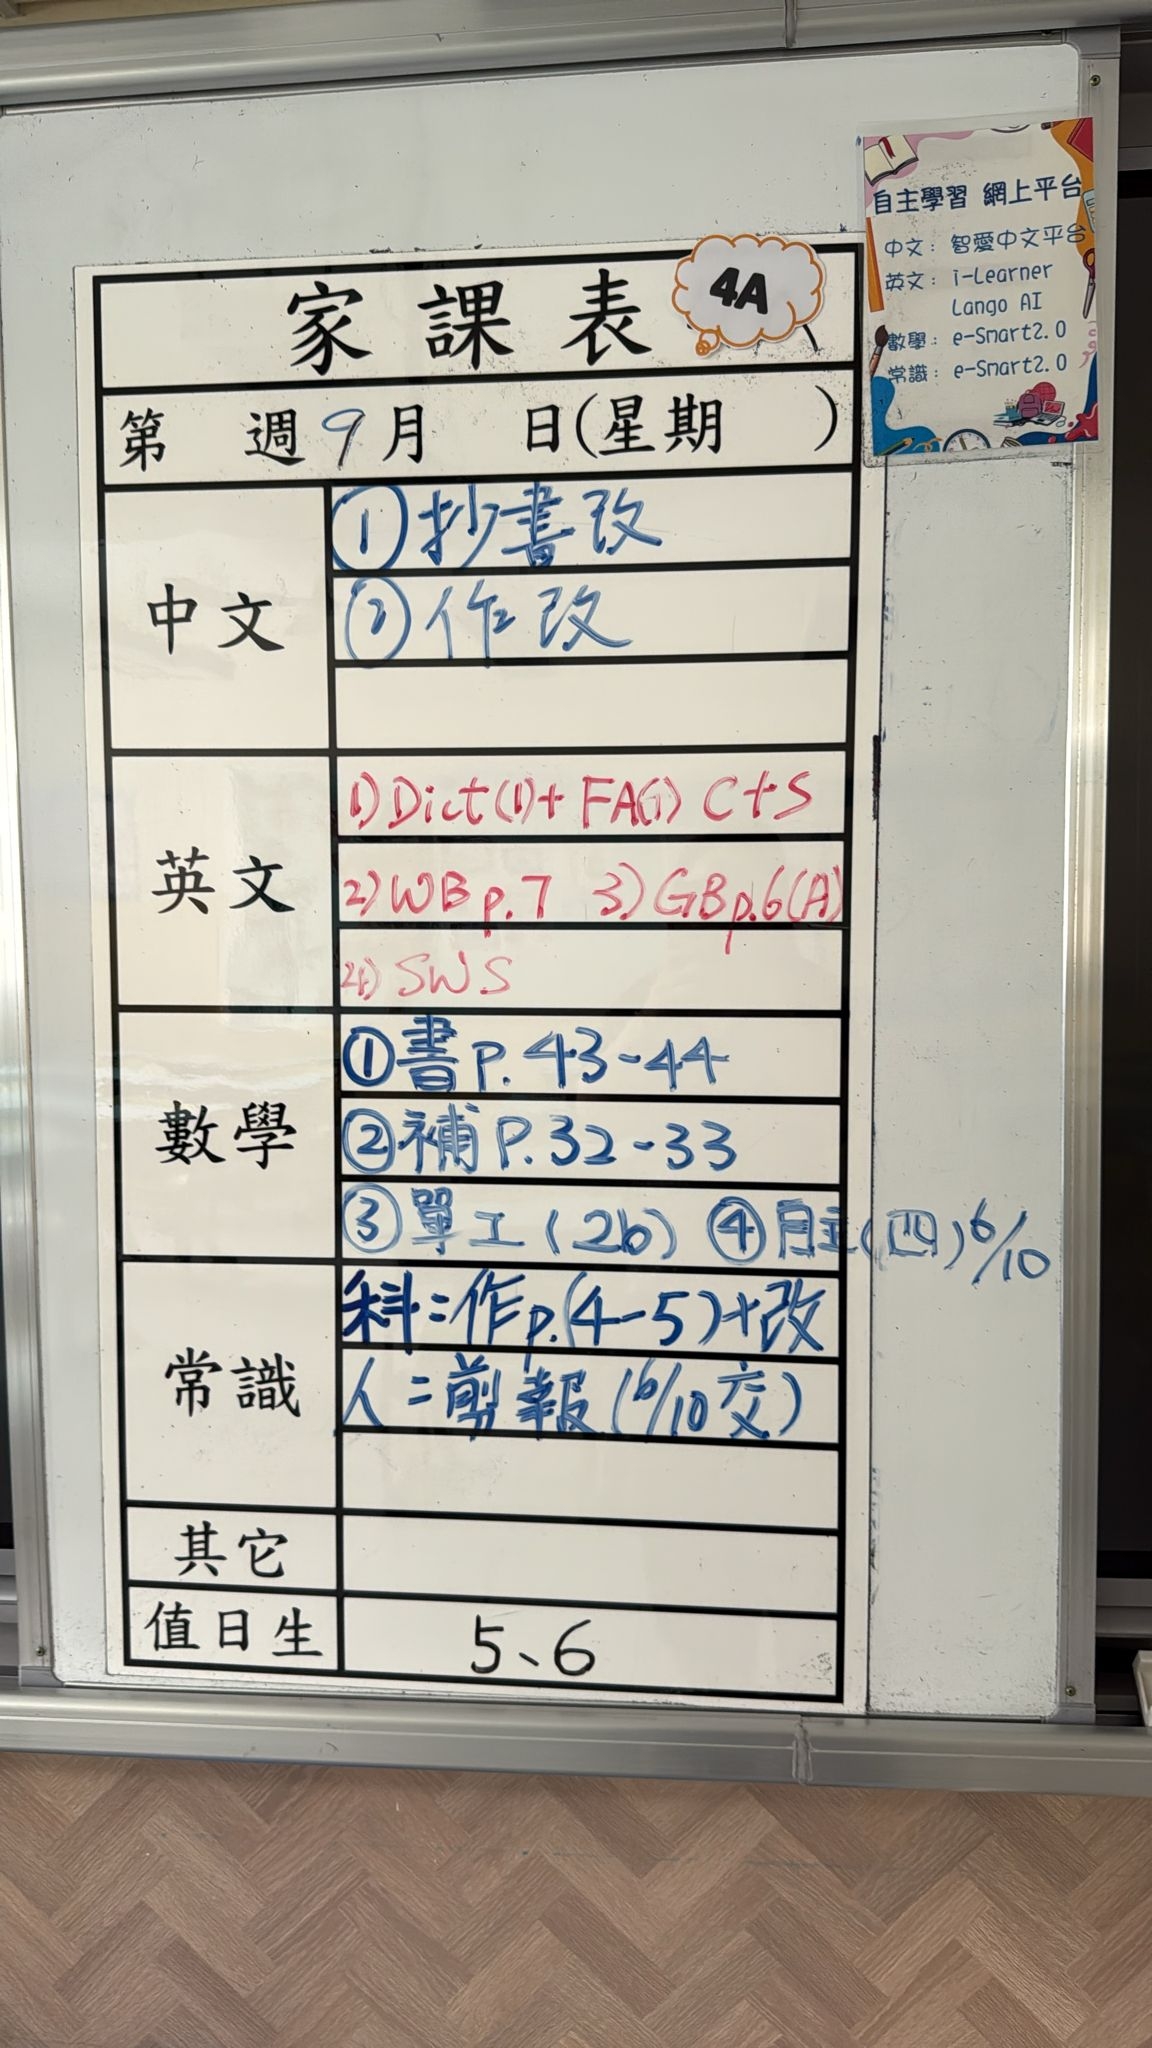 家課表
4A
第 週 9月 日(星期 )
中文
① 抄書改
② 作改
英文
1) Dict(1)+ FA(1) C+S
2) WB p.7 3) GB p.6(A)
4) SWS
數學
① 書 P. 43-44
② 補 P. 32-33
③ 單工 (2b) ④ 自主(四) 6/10
常識
科:作 p.(4-5)+改
人:剪報(6/10交)
其它
值日生
5、6
自主學習 網上平台
中文: 智愛中文平台
英文: i-Learner
Lango AI
數學: e-Smart2.0
常識: e-Smart2.0